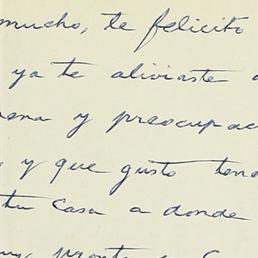 mucho, te felicito
ya te aliviaste
y preocupac
y que gusto ten
tu casa a donde